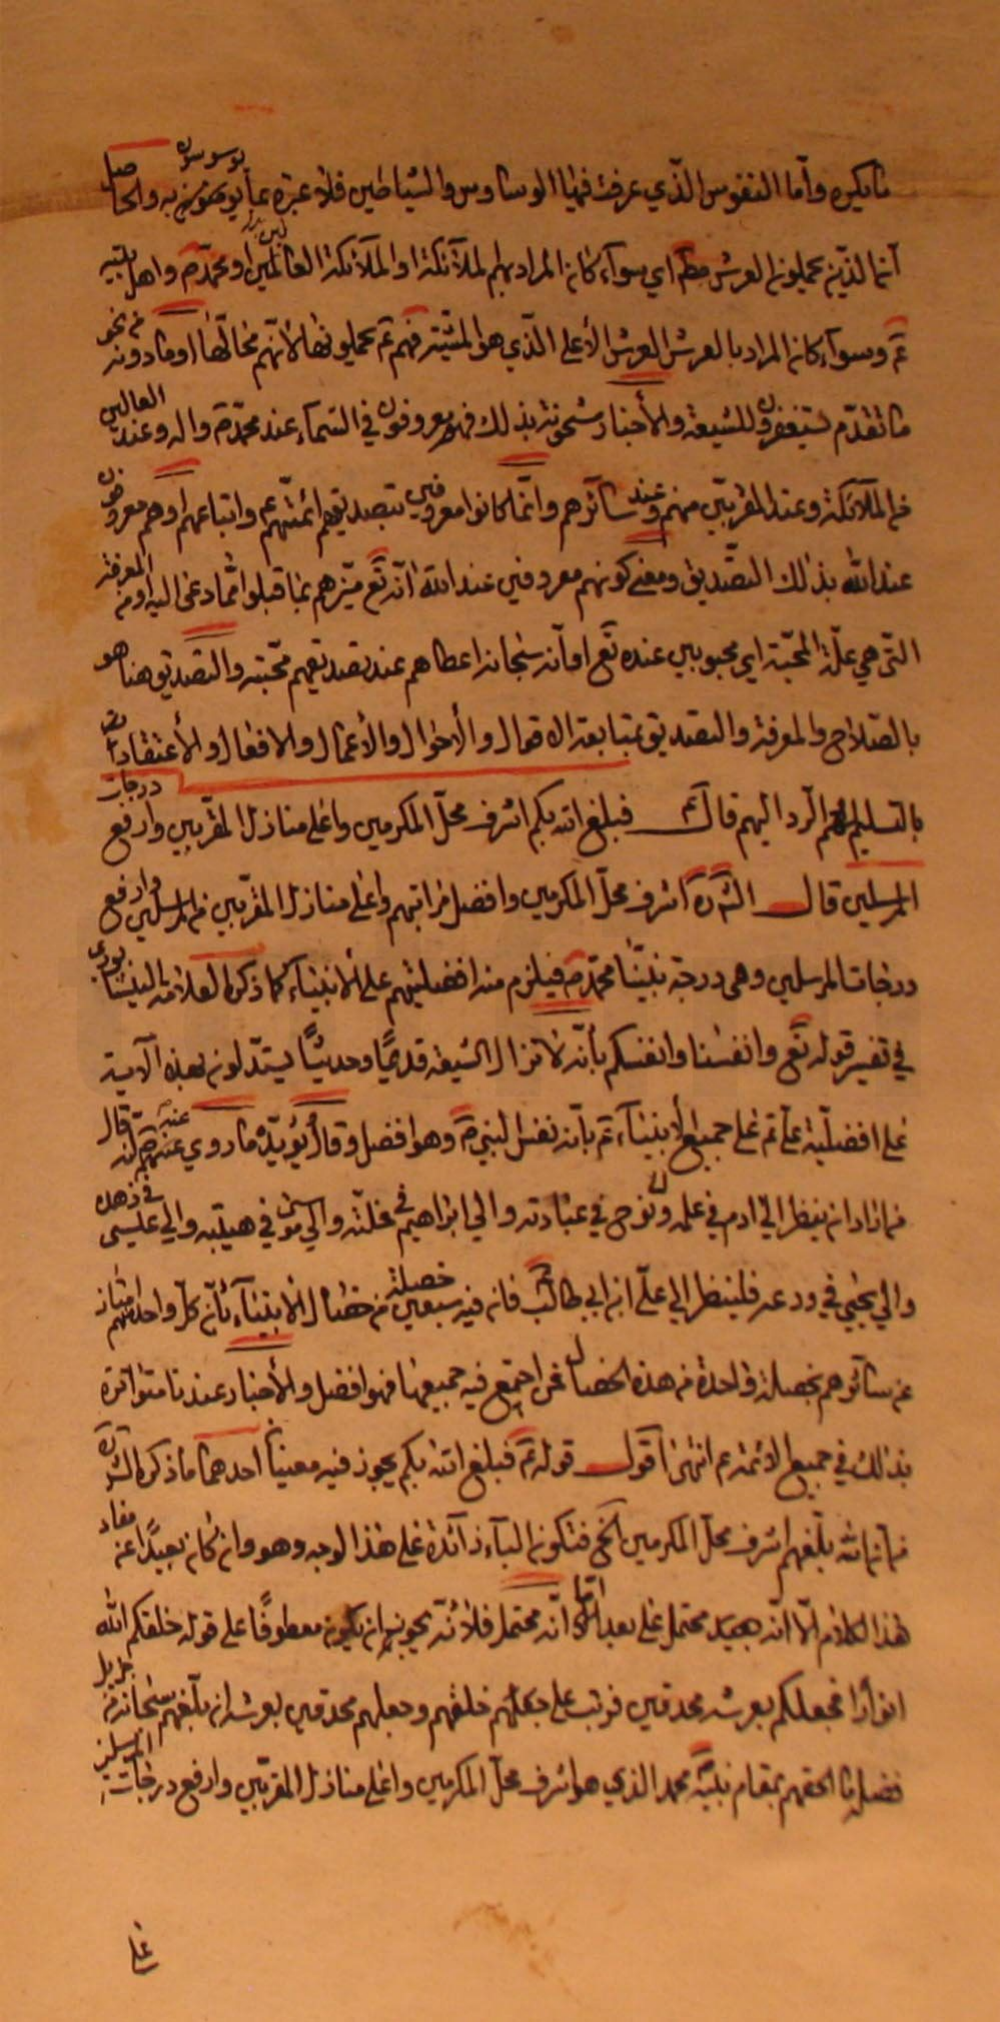 ما يكره وأما النفوس الذي عرفت فمنها الوساوس والشياطين فلا عبرة بما يوسوسون به والحاصل
أنما الذين يحملون العرش مط اي سواء كان المراد بهم الملآئكة او الملآئكة العالين او محمد ص واهل بيته
ع م وسوآء كان المراد بالعرش العرش الأعلى الذي هو المشيّة فهم ع م يحملونها لأنهم محالها او ما دونه من نحو
ما تقدم يستغفرون للشيعة والأخبار مشحونة بذلك فهم معروفون في السمآء عند محمد ص واله وعند العالين
من الملآئكة وعند المقربين منهم وعند سآئرهم وانما كانوا معروفين بتصديقهم ائمتهم ع م واتباعهم او هم معروفون
عند الله بذلك التصديق ومعنى كونهم معروفين عند الله انه تع ميزهم بما قبلوا مما دعى اليه او من المعرفة
التي هي علة المحبة اي محبوبين عنده تع او انه سبحانه اعطاهم عند تصديقهم محبته والتصديق هنا هو
بالصلاح والمعرفة والتصديق بمتابعة الاقوال والأحوال والأعمال والافعال والأعتقادات
بالتسليم لهم الرد اليهم قال ع م فبلغ الله بكم اشرف محل المكرمين واعلى منازل المقربين وارفع درجات
المرسلين قال الش ره اشرف محل المكرمين وافضل مراتبهم واعلى منازل المقربين من المرسلين وارفع
درجات المرسلين وهى درجة نبينا محمد ص فيلزم منه افضليتهم على الأنبيآء كما ذكره العلامة النيشابوري
في تفسير قوله تع وانفسنا وانفسكم بأنه لا تزال الشيعة قديمًا وحديثًا يستدلون بهذه الآية
على افضلية علي ع م على جميع الأنبيآء ع م بأنه نفس النبي ص وهو افضل وقال يؤيده ما روي عنه ص انه قال
من اراد ان ينظر الى ادم في علمه ونوح في عبادته والى ابراهيم في خلته والى موسى في هيبته والى عيسى في زهده
والى يحيى في ورعه فلينظر الى علي ابن ابي طالب فان فيه سبعين خصلة من خصال الأنبيآء بأن كل واحد منهم امتاز
عن سآئرهم بخصلة واحدة من هذه الخصال فمن اجتمع فيه جميعها فهو افضل والأخبار عندنا متواترة
بذلك في جميع الأئمة ع م انتهى اقول قوله ع م فبلغ الله بكم يجوز فيه معنيان احدهما ما ذكره الش ره
من ان الله بلغهم اشرف محل المكرمين الخ فتكون البآء زآئدة على هذا الوجه وهو وان كان بعيدًا عن مفاد
هذا الكلام الا انه بعيد محتمل على بعد اما انه محتمل فلأنه يجوز ان يكون معطوفًا على قوله خلقكم الله
انوارًا فجعلكم بعرشه محدقين فرتب على خلقهم وجعلهم محدقين بعرشه ان بلغهم سبحانه من جزيل
فضله ما الحقهم بمقام نبيه محمد الذي هو اشرف محل المكرمين واعلى منازل المقربين وارفع درجات المرسلين
على